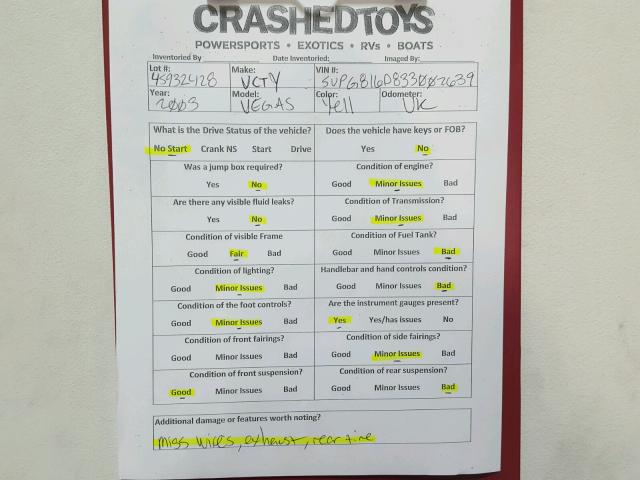 CRASHEDTOYS
POWERSPORTS • EXOTICS • RVs • BOATS
Inventoried By Date Inventoried: Imaged By:
Lot #: Make: VIN #:
45932428 VCTY 5VPGB16D833002639
Year: Model: Color: Odometer:
2003 VEGAS Yell UK
What is the Drive Status of the vehicle? Does the vehicle have keys or FOB?
No Start Crank NS Start Drive Yes No
Was a jump box required? Condition of engine?
Yes No Good Minor Issues Bad
Are there any visible fluid leaks? Condition of Transmission?
Yes No Good Minor Issues Bad
Condition of visible Frame Condition of Fuel Tank?
Good Fair Bad Good Minor Issues Bad
Condition of lighting? Handlebar and hand controls condition?
Good Minor Issues Bad Good Minor Issues Bad
Condition of the foot controls? Are the instrument gauges present?
Good Minor Issues Bad Yes Yes/has issues No
Condition of front fairings? Condition of side fairings?
Good Minor Issues Bad Good Minor Issues Bad
Condition of front suspension? Condition of rear suspension?
Good Minor Issues Bad Good Minor Issues Bad
Additional damage or features worth noting?
Miss wires, exhaust, rear tire